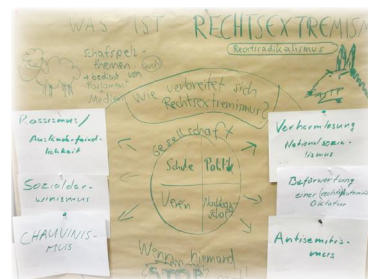 WAS IST RECHTSEXTREMISM
(Rechtsradikalismus)
Schafspelz-
themen
+ bedient von
Medien
Wie verbreitet sich
Rechtsextremismus?
Gesellschaft
Schule
Politik
Verein
Rassismus/
Ausländerfeind-
lichkeit
Sozialdar-
winismus
CHAUVINIS-
MUS
Verharmlosung
Nationalsozia-
lismus
Befürwortung
einer
Diktatur
Antisemitis-
mus
Wenn niemand
STOP